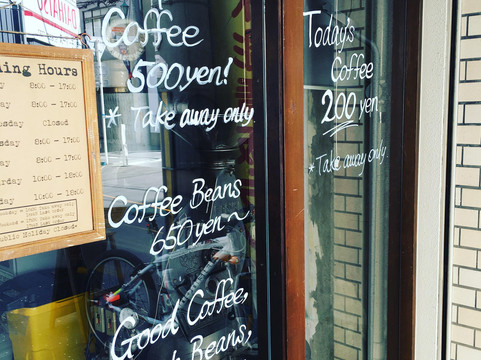 Hours
8:00 - 17:00
8:00 - 17:00
Closed
8:00 - 17:00
8:00 - 17:00
10:00 - 18:00
10:00 - 18:00
Holiday Closed
Coffee
500yen!
* Take away only
Coffee Beans
650yen~
Good Coffee,
Beans,
Today's
Coffee
200yen
*Take away only